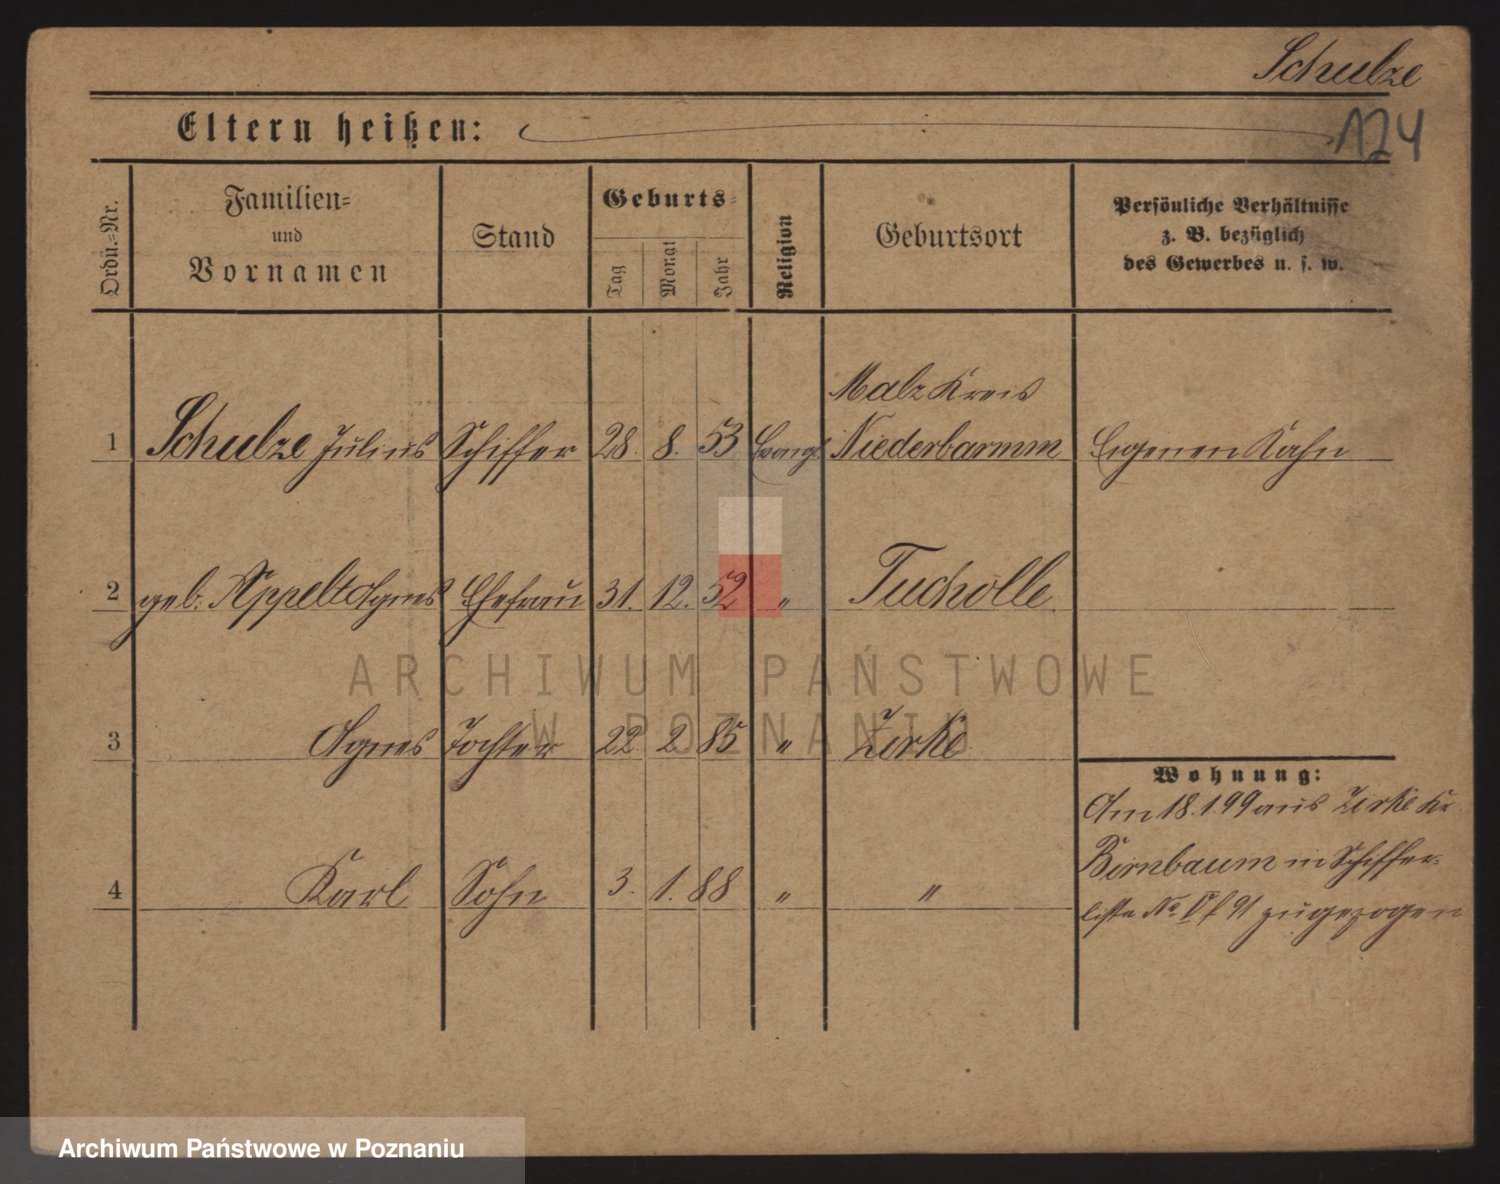 Schulze
124
Eltern heißen:
Ordn.-Nr.
Familien-
und
Vornamen
Stand
Geburts-
Tag
Monat
Jahr
Religion
Geburtsort
Persönliche Verhältnisse
z. B. bezüglich
des Gewerbes u. s. w.
Malz Kreis
1 Schulze Julius Schiffer 28. 8. 53 Evangl Niederbarnim Eigenen Kahn
2 geb. Appelt Agnes Ehefrau 31. 12. 52 " Tucholle
ARCHIWUM PAŃSTWOWE
W POZNANIU
3 Agnes Tochter 22 2 85 " Zirke
Wohnung:
Am 18.1.99 aus Zirke Kr.
Birnbaum in Schiffer-
4 Karl Sohn 3. 1. 88 " "
liste No zugezogen
Archiwum Państwowe w Poznaniu